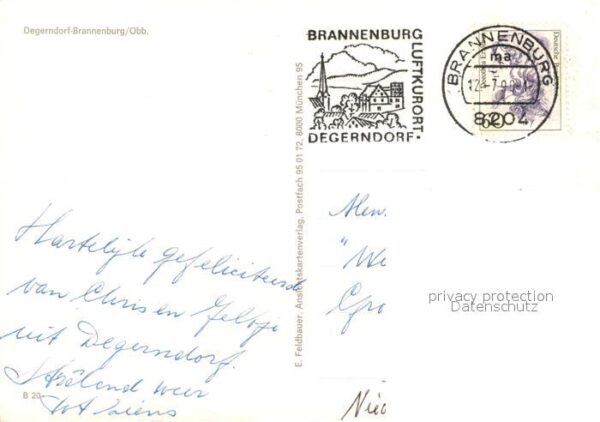 Degerndorf-Brannenburg/Obb.
BRANNENBURG
LUFTKURORT
DEGERNDORF
BRANNENBURG
ma
8204
60
E. Feldbauer, Ansichtskartenverlag, Postfach 95 01 72, 8000 München 95
Hartelijk gefeliciteerd
van Chris en
uit Degerndorf.
Stralend weer
tot ziens
B 20
Men.
"We
Gro
Nied
privacy protection
Datenschutz